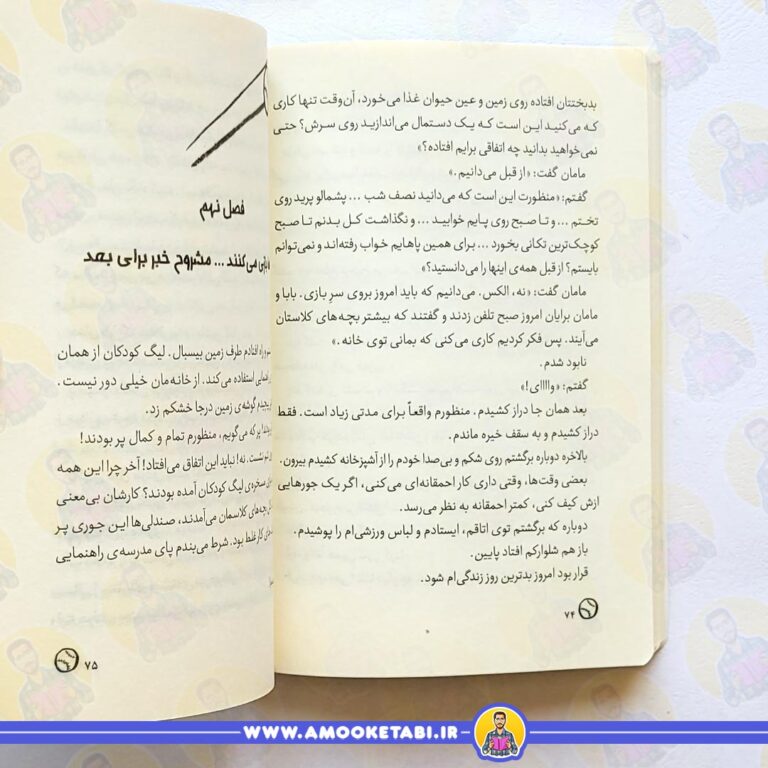 بدبختتان افتاده روی زمین و عین حیوان غذا می‌خورد، آن‌وقت تنها کاری
که می‌کنید این است که یک دستمال می‌اندازید روی سرش؟ حتی
نمی‌خواهید بدانید چه اتفاقی برایم افتاده؟»
مامان گفت: «از قبل می‌دانیم.»
گفتم: «منظورت این است که می‌دانید نصف شب ... پشمالو پرید روی
تختم ... و تا صبح روی پایم خوابید ... و نگذاشت کل بدنم تا صبح
کوچک‌ترین تکانی بخورد ... برای همین پاهایم خواب رفته‌اند و نمی‌توانم
بایستم؟ از قبل همه‌ی اینها را می‌دانستید؟»
مامان گفت: «نه، الکس. می‌دانیم که باید امروز بروی سرِ بازی. بابا و
مامان برایان امروز صبح تلفن زدند و گفتند که بیشتر بچه‌های کلاستان
می‌آیند. پس فکر کردیم کاری می‌کنی که بمانی توی خانه.»
نابود شدم.
گفتم: «واااای!»
بعد همان جا دراز کشیدم. منظورم واقعاً برای مدتی زیاد است. فقط
دراز کشیدم و به سقف خیره ماندم.
بالاخره دوباره برگشتم روی شکم و بی‌صدا خودم را از آشپزخانه کشیدم بیرون.
بعضی وقت‌ها، وقتی داری کار احمقانه‌ای می‌کنی، اگر یک جورهایی
ازش کیف کنی، کمتر احمقانه به نظر می‌رسد.
دوباره که برگشتم توی اتاقم، ایستادم و لباس ورزشی‌ام را پوشیدم.
باز هم شلوارکم افتاد پایین.
قرار بود امروز بدترین روز زندگی‌ام شود.
۷۴
فصل نهم
می‌کنند ... مشروح خبر برای بعد
راه افتادم طرف زمین بیسبال. لیگ کودکان از همان
استفاده می‌کند. از خانه‌مان خیلی دور نیست.
گوشه‌ی زمین درجا خشکم زد.
پر که می‌گویم، منظورم تمام و کمال پر بودند!
نه! نباید این اتفاق می‌افتاد! آخر چرا این همه
مسخره‌ی لیگ کودکان آمده بودند؟ کارشان بی‌معنی
بچه‌های کلاسمان می‌آمدند، صندلی‌ها این جوری پر
کار غلط بود. شرط می‌بندم پای مدرسه‌ی راهنمایی
۷۵
WWW.AMOOKETABI.IR